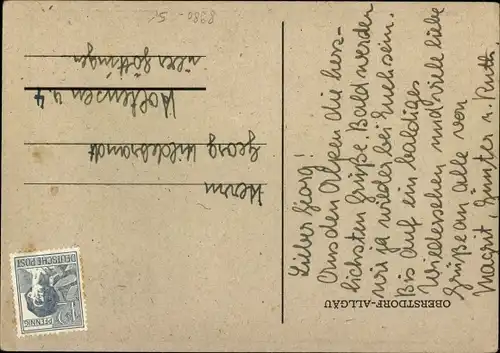 8980-5.
Lieber Georg!
Aus den Alpen die herz-
lichsten Grüße. Bald werden
wir ja wieder bei Euch sein.
Bis auf ein baldiges
Wiedersehen und viele liebe
Grüße an alle von
Magrit, Günter u. Ruth
OBERSTDORF-ALLGÄU
Herrn
Georg Hildebrandt
Holtensen n. 4
über Göttingen
DEUTSCHE POST
12 PFENNIG